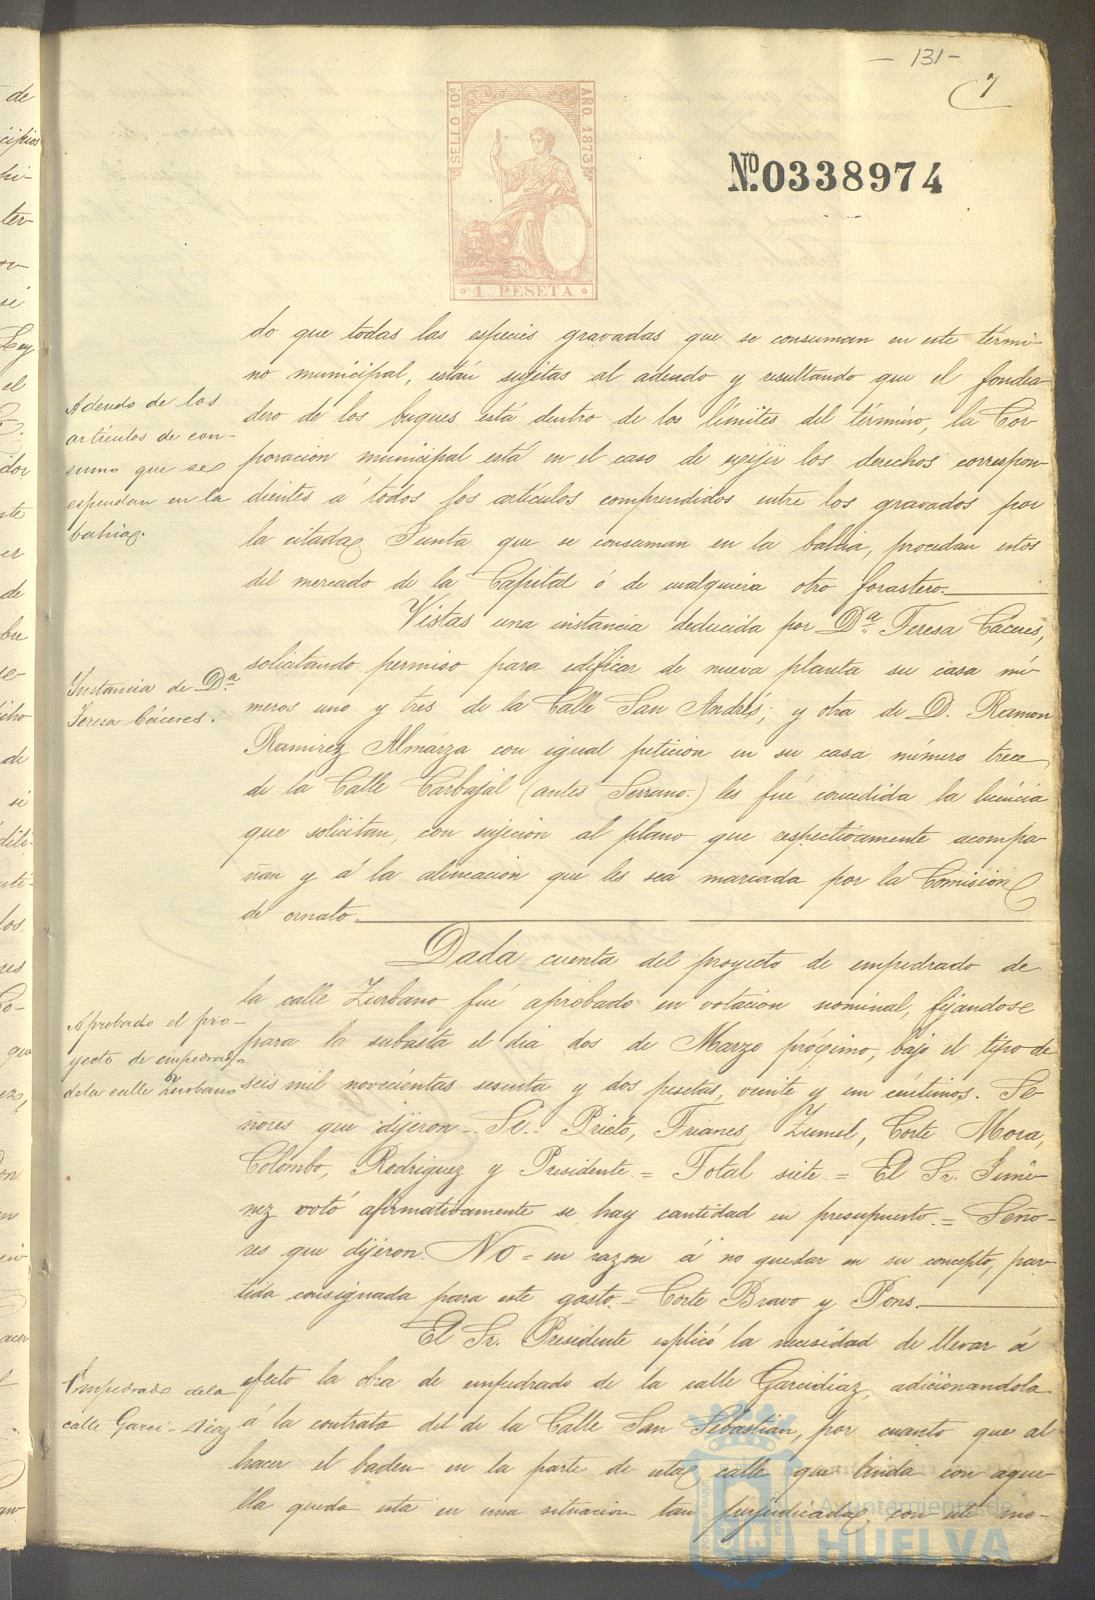 - 131 -
7
SELLO 10º
AÑO. 1873
1 PESETA
Nº. 0338974
do que todas las especies gravadas que se consuman en este térmi-
no municipal, están sugetas al adeudo y resultando que el fondea-
dero de los buques está dentro de los límites del término, la Cor-
poracion municipal está en el caso de exijir los derechos correspon-
dientes á todos los artículos comprendidos entre los gravados por
la citada Junta que se consuman en la bahia, procedan estos
del mercado de la Capital ó de cualquiera otro forastero.
Adeudo de los
artículos de con-
sumo que se
espendan en la
bahia.
Vistas una instancia deducida por Dª. Teresa Cáceres,
solicitando permiso para edificar de nueva planta su casa nú-
meros uno y tres de la Calle San Andrés; y otra de D. Ramon
Ramirez Almarza con igual peticion en su casa número trece
de la Calle Carbajal (antes Serrano.) les fué concedida la licencia
que solicitan, con sujecion al plano que respectivamente acompa-
ñan y á la alineacion que les sea marcada por la Comision
de ornato.
Instancia de Dª.
Teresa Cáceres.
Dada cuenta del proyecto de empedrado de
la calle Zurbano fué aprobado en votacion nominal, fijandose
para la subasta el dia dos de Marzo prógimo, bajo el tipo de
seis mil novecientas sesenta y dos pesetas, veinte y un céntimos. Se-
ñores que dijeron - Si - Prieto, Trianes, Zumel, Corte Mora,
Colombo, Rodriguez y Presidente. = Total siete. = El Sr. Jime-
nez votó afirmativamente se hay cantidad en presupuesto. = Seño-
res que dijeron No = en razon á no quedar en su concepto, par-
tida consignada para este gasto. = Corte Bravo y Pons.
Aprobado el pro-
yecto de empedrado
de la calle Zurbano
El Sr. Presidente esplicó la necesidad de llevar á
efecto la obra de empedrado de la calle Garcidiaz, adicionandola
á la contrata del de la Calle San Sebastian, por cuanto que al
hacer el baden en la parte de esta calle que linda con aque-
lla queda esta en una situacion tan perjudicada, con este mo-
Empedrado de la
calle Garci-Diaz
Ayuntamiento de
HUELVA